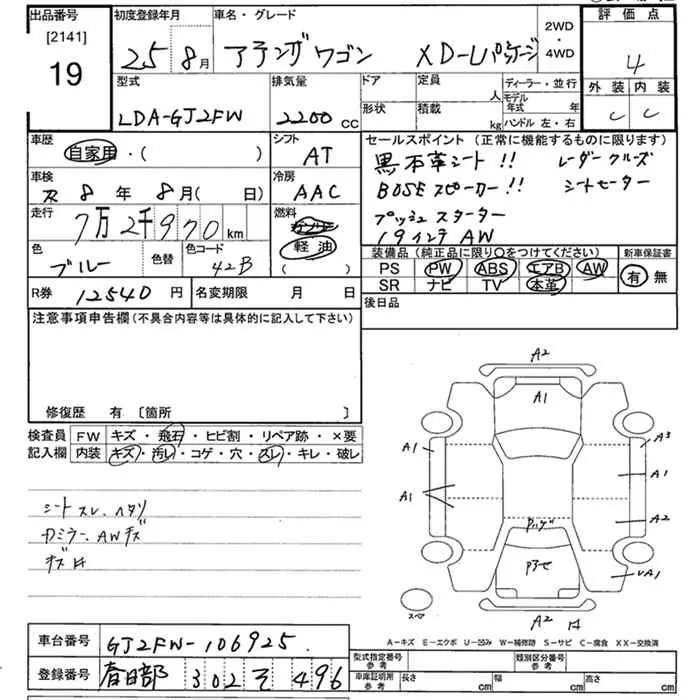 出品番号 初度登録年月 車名・グレード 2WD・4WD 評価点
[2141]
19 25 8月 アテンザワゴン XD-Lパッケージ 4
型式 排気量 ドア 定員 人 ディーラー・並行 外装 内装
LDA-GJ2FW 2200 CC 形状 積載 kg モデル年式 年 ハンドル 左・右 C C
車歴 自家用・( ) シフト AT セールスポイント (正常に機能するものに限ります)
黒本革シート!! レーダークルーズ
車検 8年 8月( 日) 冷房 AAC BOSEスピーカー!! シートヒーター
走行 7万2千970km 燃料 プッシュスターター
軽油 19インチAW
( )
色 ブルー 色替 色コード 42B 装備品 (純正品に限り○をつけてください) 新車保証書
PS PW ABS エアB AW 有 無
SR ナビ TV 本革
R券 12540円 名変期限 月 日 後日品
注意事項申告欄(不具合内容等は具体的に記入して下さい)
修復歴 有 [箇所 ]
検査員 FW キズ・飛石・ヒビ割・リペア跡・×要
記入欄 内装 キズ・汚レ・コゲ・穴・スレ・キレ・破レ
シートスレ、ヘタリ
Rミラー、AWキズ
A2
A1
A1 A3
A1
A1
A2
UA1
スペア
A2
A-キズ E-エクボ U-凹み W-補修跡 S-サビ C-腐食 XX-交換済
車台番号 GJ2FW-106925 型式指定番号 参考 類別区分番号 参考
登録番号 春日部 302 そ 496 車庫証明用 参考 長さ cm 幅 cm 高さ cm